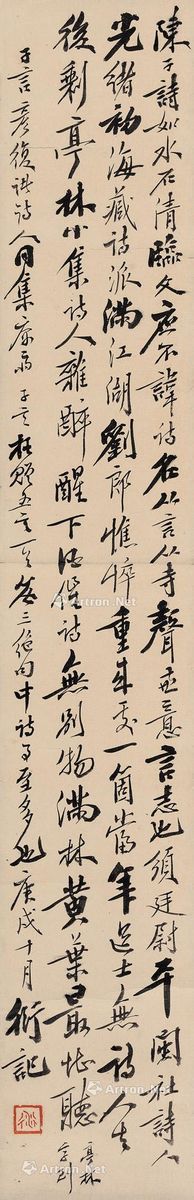 陳子詩如水石清臨文庶不諱詩名从言从寺聲兼意言志也須廷尉平閩社詩人
光緒初海藏詩派滿江湖劉郎憔悴重來處一箇當年道士無詩人去
後剩亭林小集詩人雜醉醒下酒詩無別物滿林黃葉最怕聽
亭林
子言彥復諸詩人同集 子言枉贈五言一首答三絕句中詩事至多也庚戌十月 衍記
衍
Artron.Net